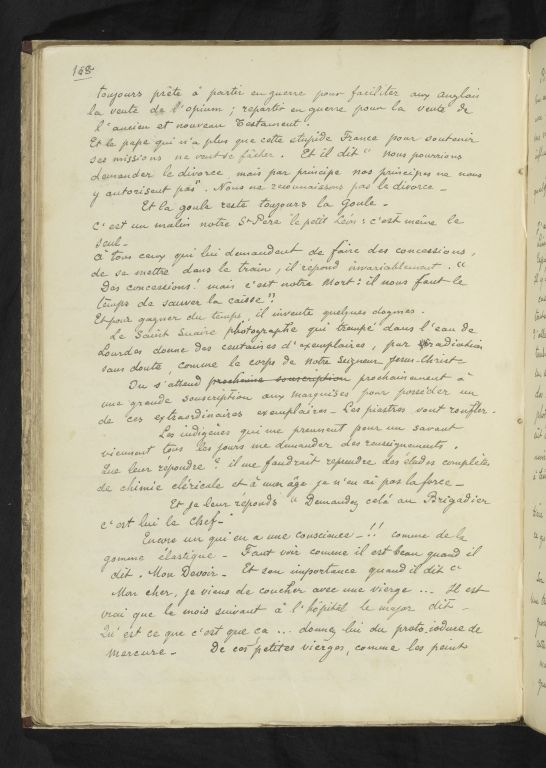 168
toujours prête à partir en guerre pour faciliter aux anglais
la vente de l'opium ; repartir en guerre pour la vente de
l'ancien et nouveau Testament.
Et le pape qui n'a plus que cette stupide France pour soutenir
ses missions ne veut se fâcher. Et il dit " nous pourrions
demander le divorce mais par principe nos principes ne nous
y autorisent pas". Nous ne reconnaissons pas le divorce -
Et la goule reste toujours la Goule -
C'est un malin notre St Père le petit Léon : c'est même le
seul -
à tous ceux qui lui demandent de faire des concessions,
de se mettre dans le train, il répond invariablement. "
Des concessions ! mais c'est notre mort : il nous faut le
temps de sauver la caisse".
Et pour gagner du temps, il invente quelques dogmes.
Le Saint Suaire photographe qui trempé dans l'eau de
Lourdes donne des centaines d'exemplaires, par radiation
sans doute, comme le corps de notre Seigneur Jesus-Christ -
On s'attend prochaine souscription prochainement à
une grande souscription aux marquises pour posséder un
de ces extraordinaires exemplaires - Les piastres vont ronfler.
Les indigènes qui me prennent pour un savant
viennent tous les jours me demander des renseignements.
Que leur repondre ? il me faudrait reprendre des études complètes
de chimie cléricale et à mon âge je n'en ai pas la force -
Et je leur réponds " Demandez celà au Brigadier
c'est lui le chef -"
Encore un qui en a une conscience - !! comme de la
gomme élastique - Faut voir comme il est beau quand il
dit, Mon Devoir - Et son importance quand il dit "
Mon cher, je viens de coucher avec une vierge ... Il est
vrai que le mois suivant à l'hôpital le major dit -
Qu'est ce que c'est que ça ... donnez lui du proto iodure de
mercure - De ces petites vierges, comme les peint